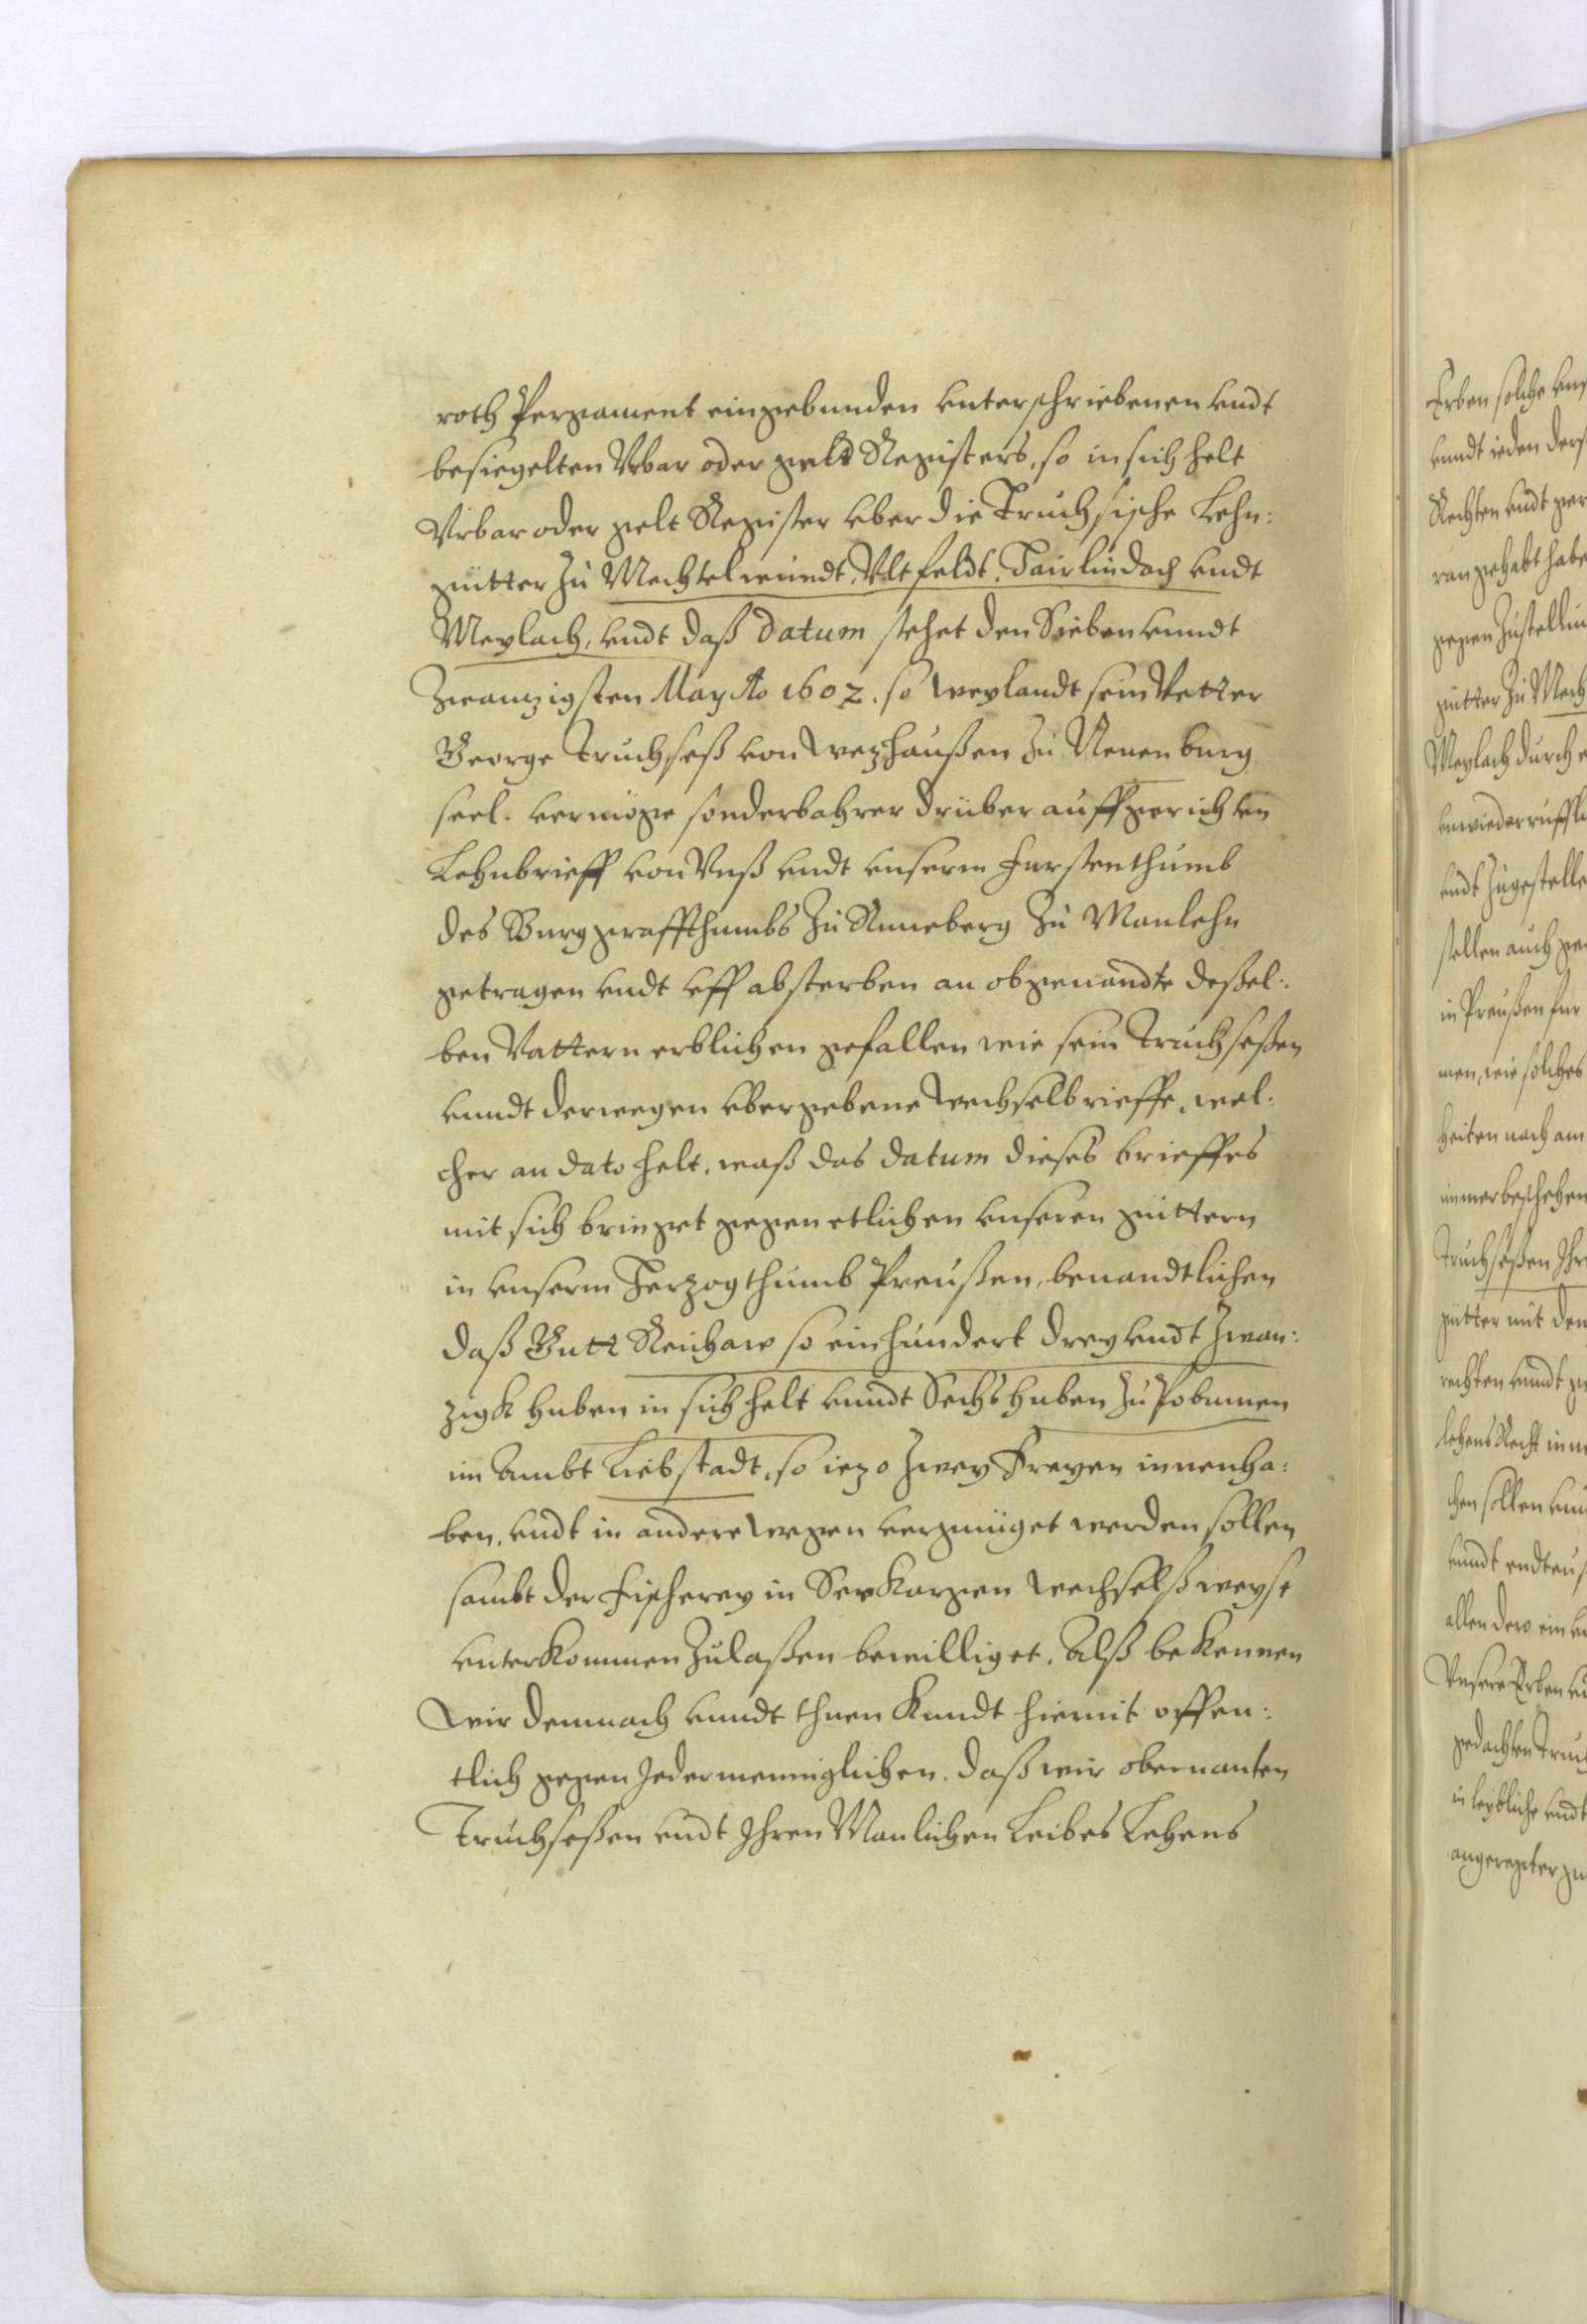 roth Pergament eingebunden unterschriebenen undt
besiegelten Vrbar oder gelt Registers, so in sich helt
Vrbar oder gelt Register uber die Truchsische Lehn:
gütter zu Mechtelreündt, Ultfeldt, Tairlindach undt
Meylach, undt daß datum stehet den Sieben unndt
Zwanzigsten May Ao 1602. so weylandt sein Vetter
George Truchseß von Wezhaußen zu Neuenburg
seel. vermöge sonderbahrer drüber auffgerichten
Lehnbrieff von Vnß undt unserm Furstenthumb
des Burggraffthumbs zu Nurneberg zu Manlehn
getragen undt uff absterben an obgenandte deßel:
ben Vattern erblichen gefallen wie sein Truchseßen
unndt derwegen ubergebene Wechselbrieffe, wel:
cher an dato helt, waß das datum dieses brieffes
mit sich bringet gegen etlichen unseren güttern
in unserm Herzogthumb Preußen, benandtlichen
daß Gutt Reichaw so einhundert drey undt Zwan:
zigk huben in sich helt unndt Sechs huben zu Pobunnen
im Ambt Liebstadt, so iezo Zwey Freyen innenha:
ben, undt in andere Wegen vergnüget werden sollen
sambt der Fischerey in See Karzen Wechselßweyse
unterkommen zulaßen bewilliget. Alß bekennen
Wir demnach unndt thuen kundt hiemit offen:
tlich gegen Jedermenniglichen. daß wir obernanten
Truchseßen undt Ihren Manlichen Leibes Lehens
Erben solche
unndt ieden
Rechten undt
ran gehabt habe
gegen Zustellun
gütter zu Mech
Meylach durch
unwiederruffli
undt zugestelle
stellen auch
in Preußen fur
men, wie solches
heiten nach am
immer beschehen
Truchseßen Ihr
gütter mit den
rechten unndt
lehens Recht inn
chen sollen
unndt
allen dero ein
Unsere Erben
gedachten Truch
in leybliche undt
angeregter